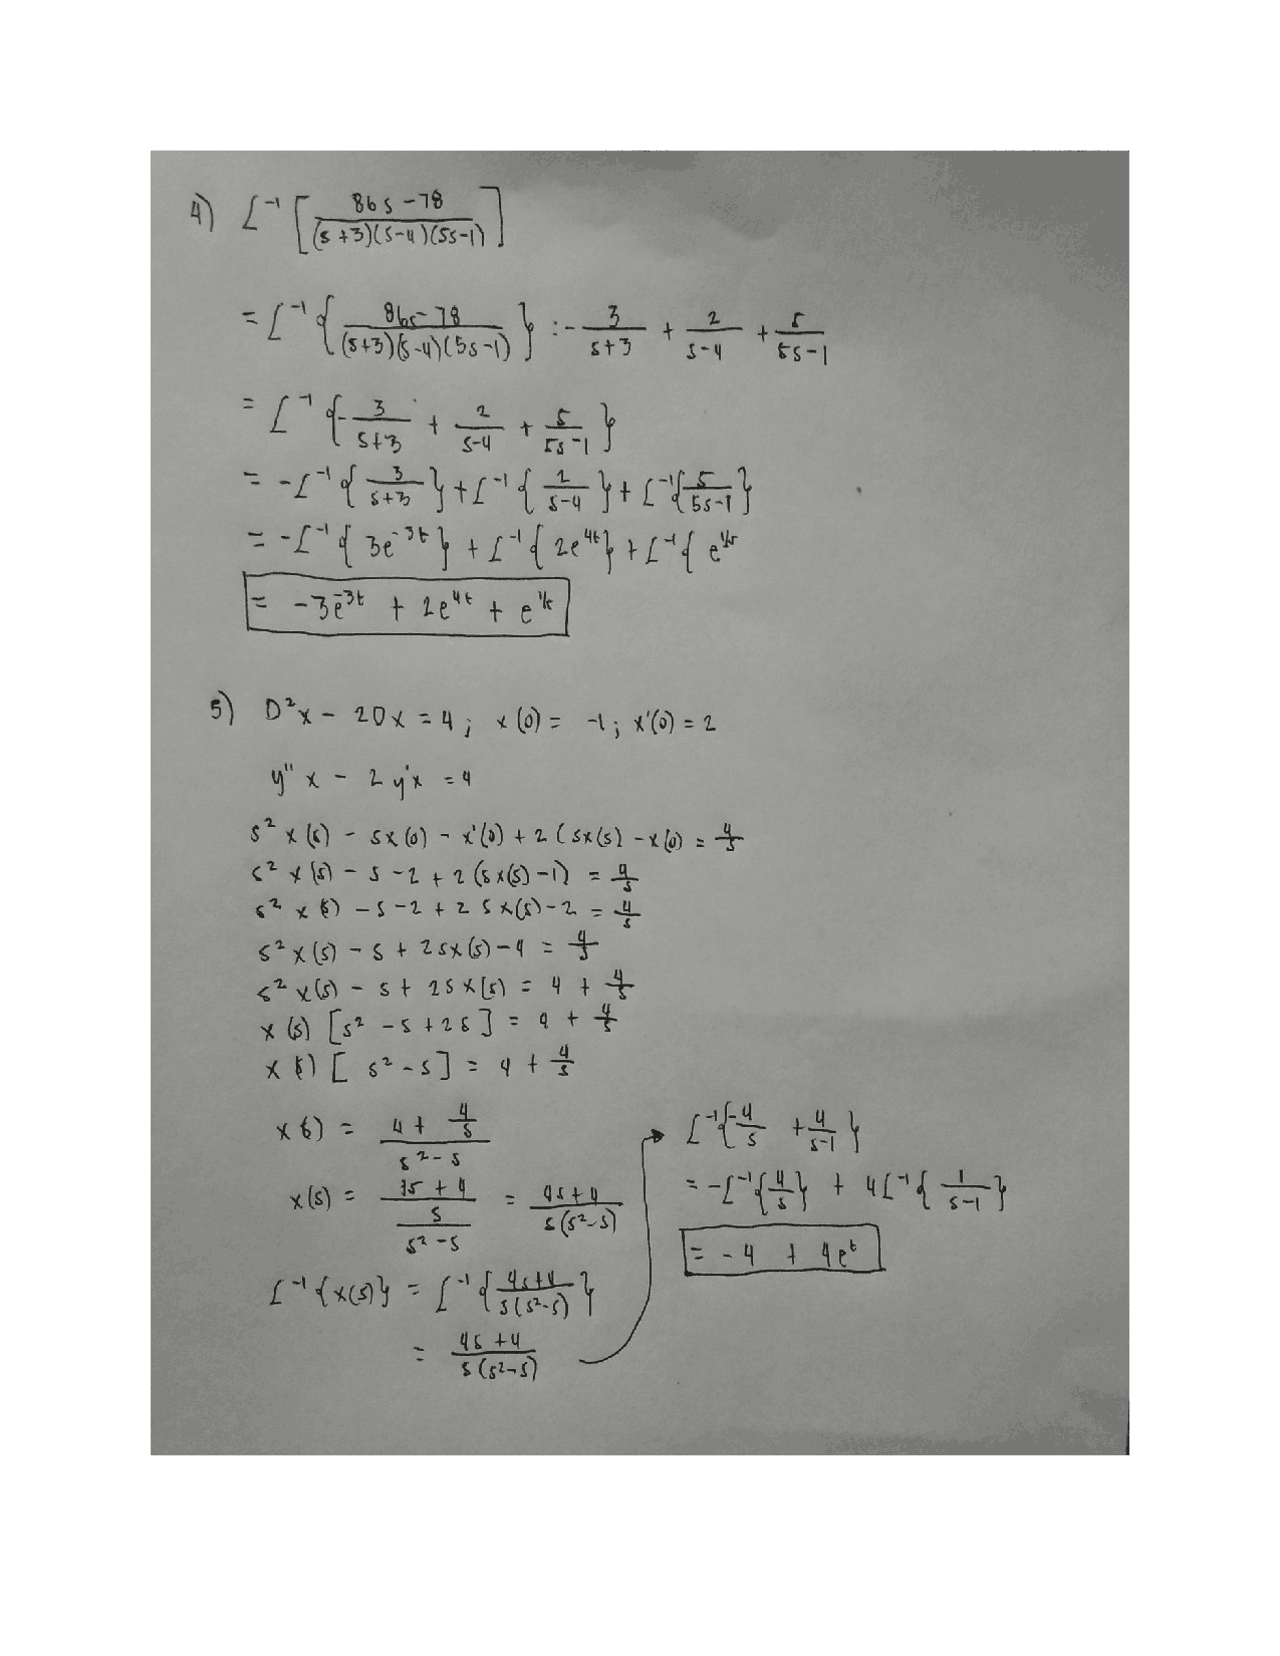 4) L⁻¹ [ (86s - 78) / ((s+3)(s-4)(5s-1)) ]
= L⁻¹ { (86s - 78) / ((s+3)(s-4)(5s-1)) } : - 3/(s+3) + 2/(s-4) + 5/(5s-1)
= L⁻¹ { - 3/(s+3) + 2/(s-4) + 5/(5s-1) }
= - L⁻¹ { 3/(s+3) } + L⁻¹ { 2/(s-4) } + L⁻¹ { 5/(5s-1) }
= - L⁻¹ { 3e^(-3t) } + L⁻¹ { 2e^(4t) } + L⁻¹ { e
= -3e^(-3t) + 2e^(4t) + e
5) D²x - 2Dx = 4 ; x(0) = -1 ; x'(0) = 2
y"x - 2y'x = 4
s² x(s) - sx(0) - x'(0) + 2(sx(s) - x(0) = 4/s
s² x(s) - s - 2 + 2(sx(s) - 1) = 4/s
s² x(s) - s - 2 + 2sx(s) - 2 = 4/s
s² x(s) - s + 2sx(s) - 4 = 4/s
s² x(s) - s + 2sx(s) = 4 + 4/s
x(s) [s² - s + 2s] = 4 + 4/s
x(s) [s² - s] = 4 + 4/s
x(s) = (4 + 4/s) / (s² - s)
x(s) = ((4s + 4)/s) / (s² - s) = (4s + 4) / (s(s² - s))
L⁻¹ {x(s)} = L⁻¹ { (4s + 4) / (s(s² - s)) }
= (4s + 4) / (s(s² - s))
L⁻¹ { -4/s + 4/(s-1) }
= - L⁻¹ { 4/s } + 4L⁻¹ { 1/(s-1) }
= -4 + 4e^t